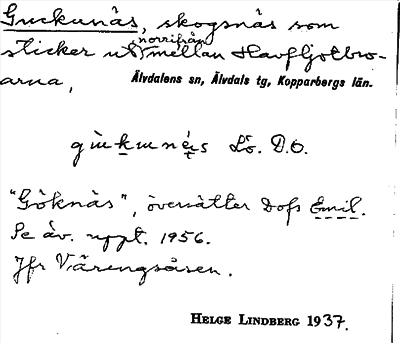 Guckunäs, skogsnäs som
sticker ut norrifrån mellan Havfljotbro-
arna, Älvdalens sn, Älvdals tg, Kopparbergs län.
Lö. D.O.
"Göknäs", översätter Dofs Emil.
Se äv. uppt. 1956.
Jfr Väringsåsen.
HELGE LINDBERG 1937.